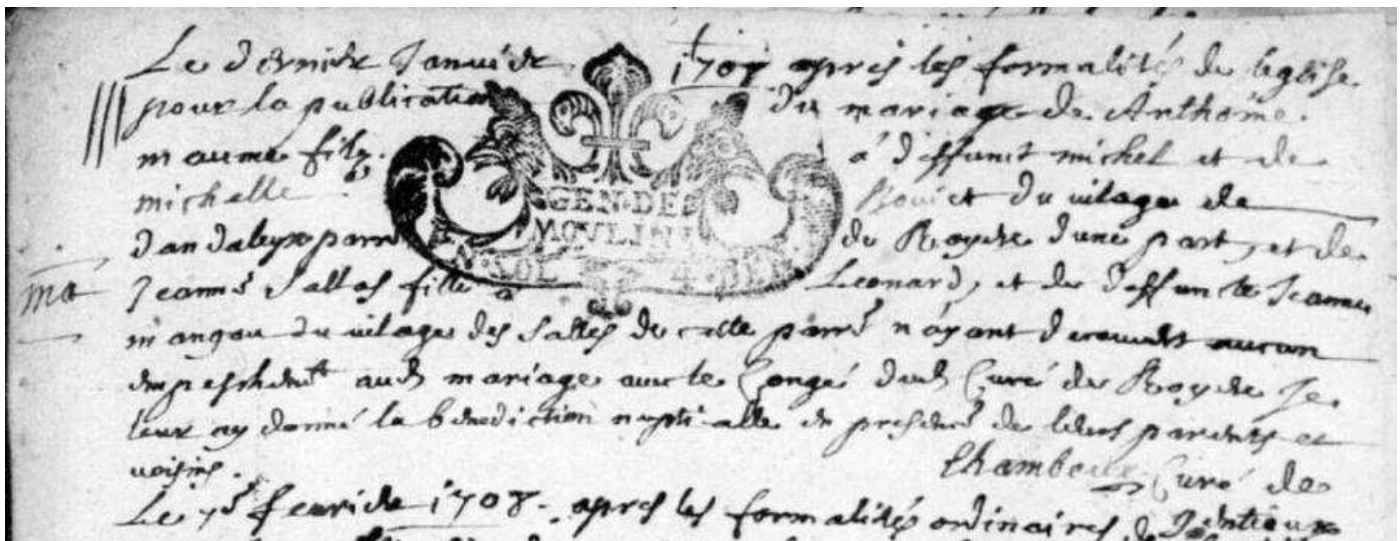 Le dernier Janvier 1708 apres les formalités de leglise
pour la publication du mariage de Anthoine
maume filz a deffunct michel et de
michelle Bouiet du vilage de
dandaleyx parr de Royere dune part, et de
GEN·DE
MOVLINS
Jeanne Salles fille a Leonard, et de deffuncte Jeanne
ma
mangou du vilage des Salles de cette parr n'ayant decouvert aucun
empeschent aud mariage avec le Congé dud Curé de Royere Je
leur ay donné la benediction nuptialle en presence de leurs parents et
voisins.
Chamboux Curé de
Le 7e fevrier 1708 apres les formalités ordinaires de Jentioux